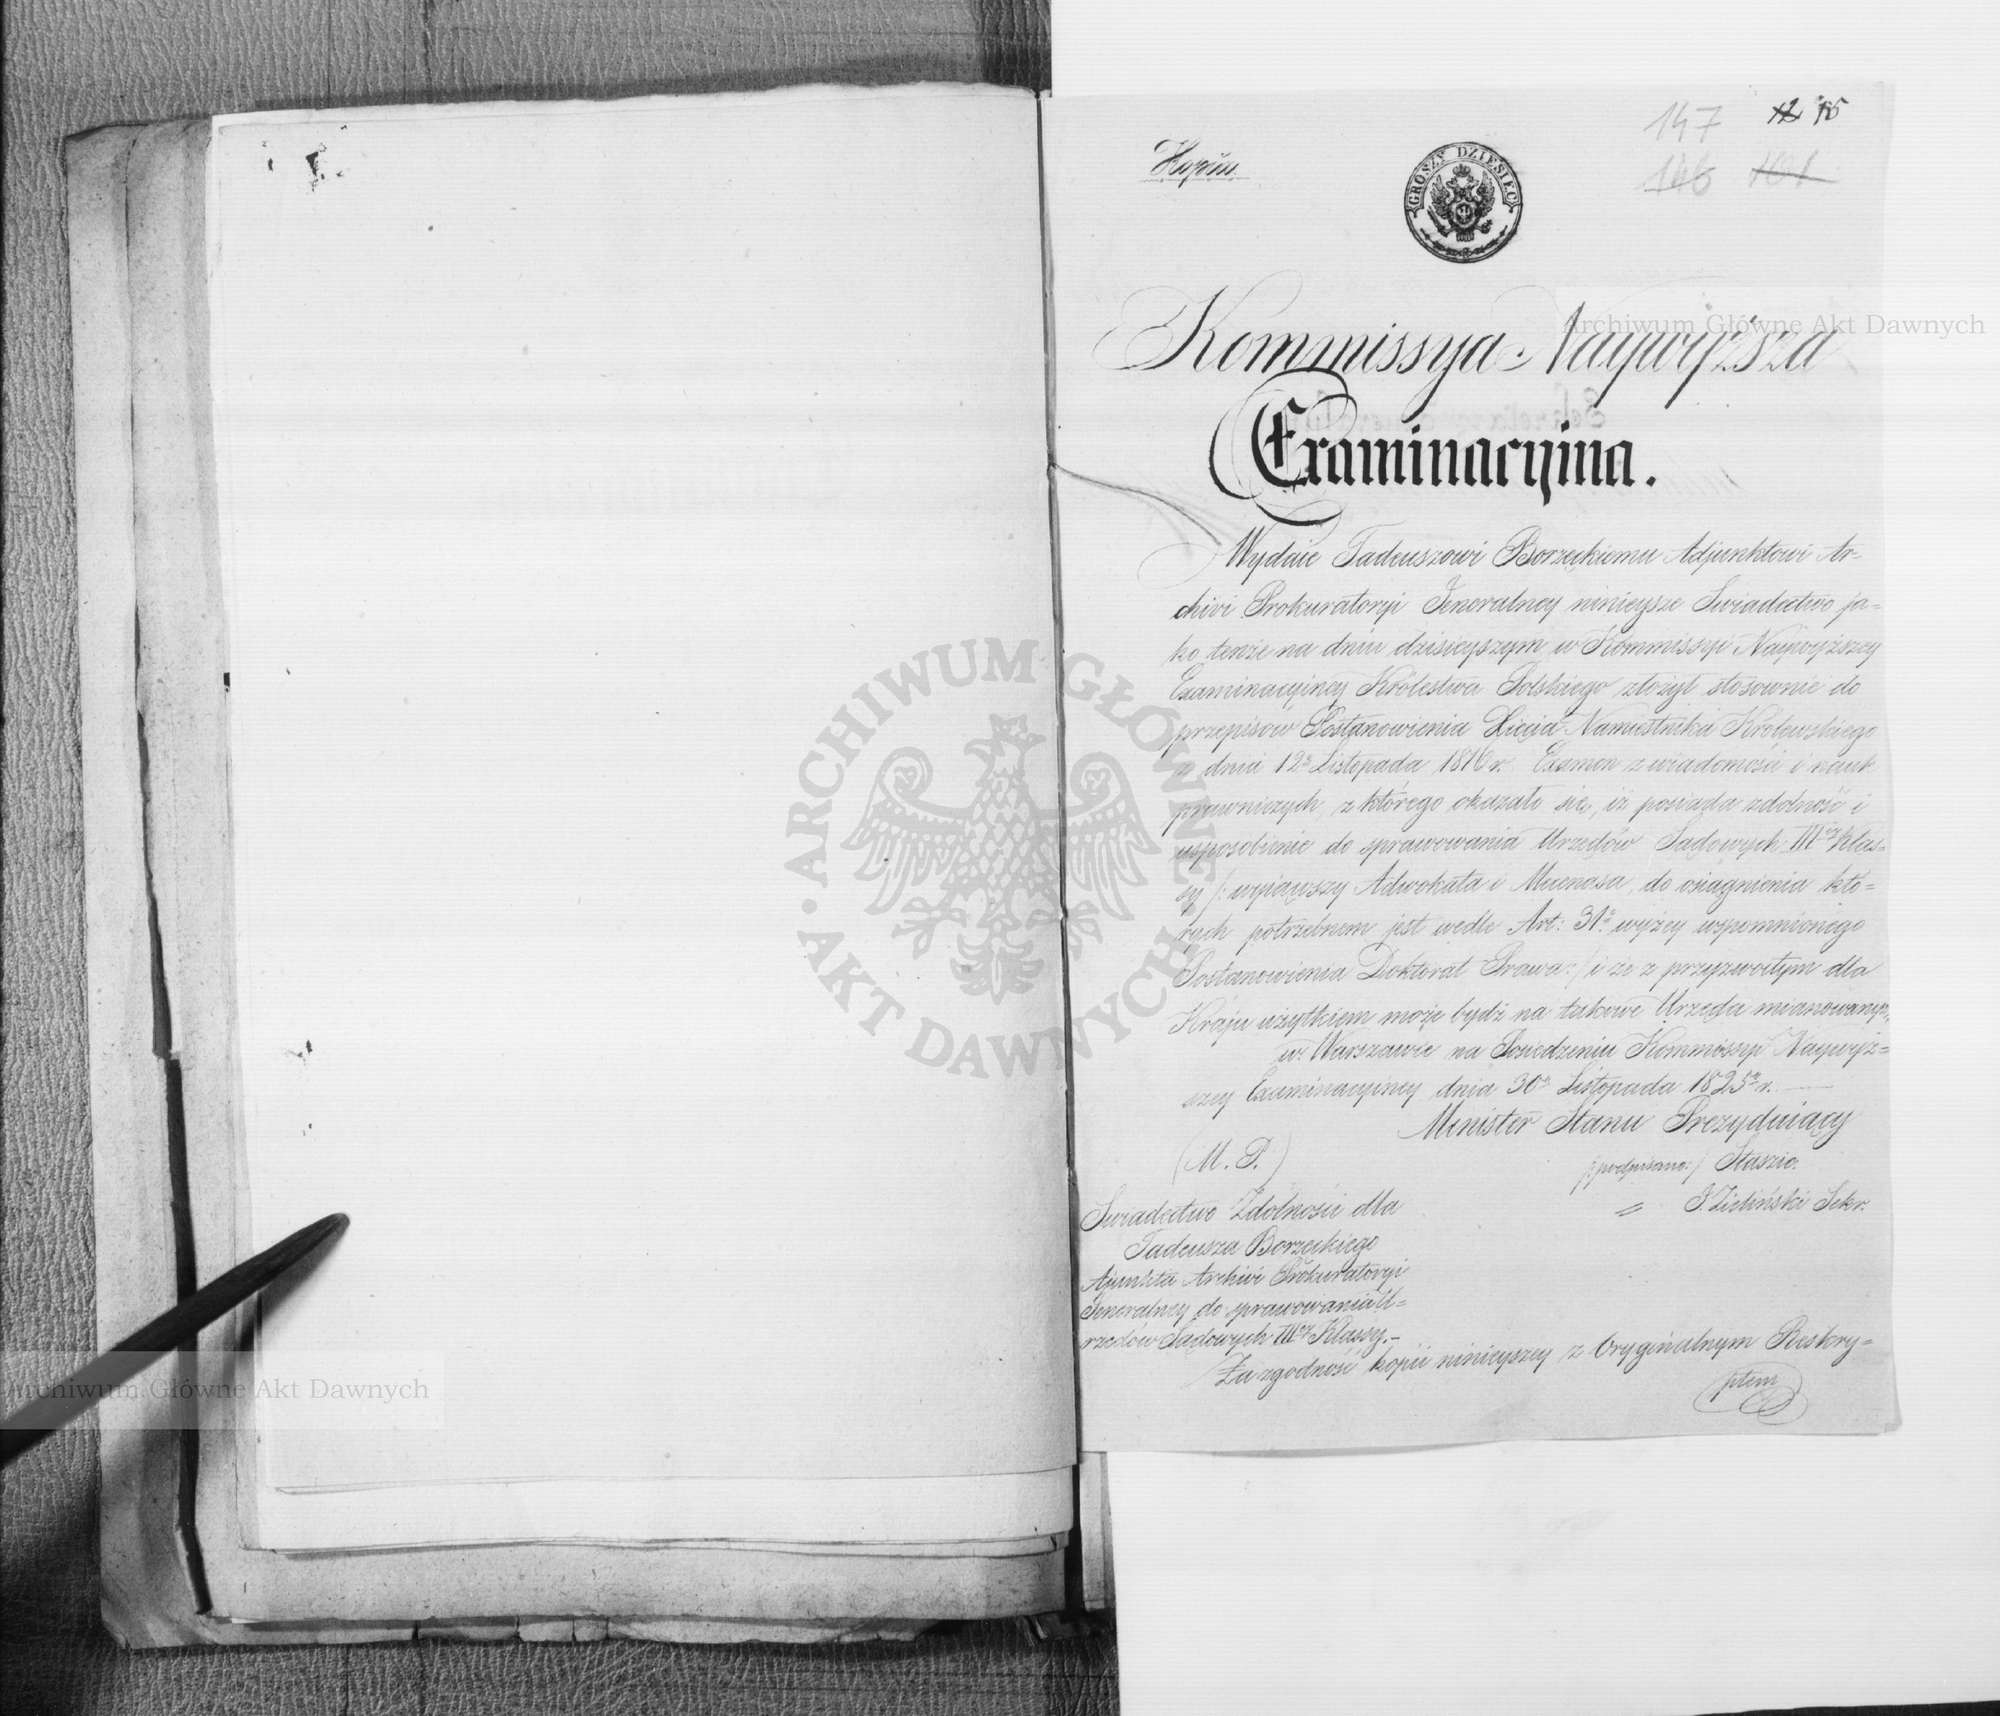 147 12 15
146 101
Kopia.
GROSZY DZIESIEC
Kommissya Naywyższa
Examinacyina.
Wydaie Tadeuszowi Borzeckiemu Adjunktowi Ar-
chivi Prokuratoryi Jeneralney ninieysze Swiadectwo ja=
ko tenże na dniu dzisieyszym w Kommissyi Naywyższey
Examinacyiney Królestwa Polskiego złożył stosownie do
przepisow Postanowienia Xięcia Namiestnika Królewskiego
z dnia 12º Listopada 1816 r. Examen z wiadomości i nauk
prawniczych, z którego okazało się, iż posiada zdolność i
usposobienie do sprawowania Urzędów Sądowych IIIey Klas=
sy /: wyiąwszy Adwokata i Mecenasa, do osiągnienia któ=
rych potrzebnem jest wedle Art: 31º wyżey wspomnionego
Postanowienia Doktorat Prawa: / i że z przyzwoitym dla
Kraju użytkiem może bydź na takowe Urzęda mianowanym.
w Warszawie na Posiedzeniu Kommissyi Naywyż=
szey Examinacyiney dnia 30º Listopada 1825º r.
Minister Stanu Prezyduiący
(M. P.) /:podpisano:/ Staszic.
= J. Zieliński Sekr.
Swiadectwo Zdolności dla
Tadeusza Borzeckiego
Ajunkta Archivi Prokuratoryi
Jeneralney do sprawowania U=
rzedów Sądowych IIIey Klassy.-
Za zgodność kopii ninieyszey z Oryginalnym Reskry=
ptem
Archiwum Główne Akt Dawnych
ARCHIWUM GŁÓWNE
AKT DAWNYCH
Archiwum Główne Akt Dawnych